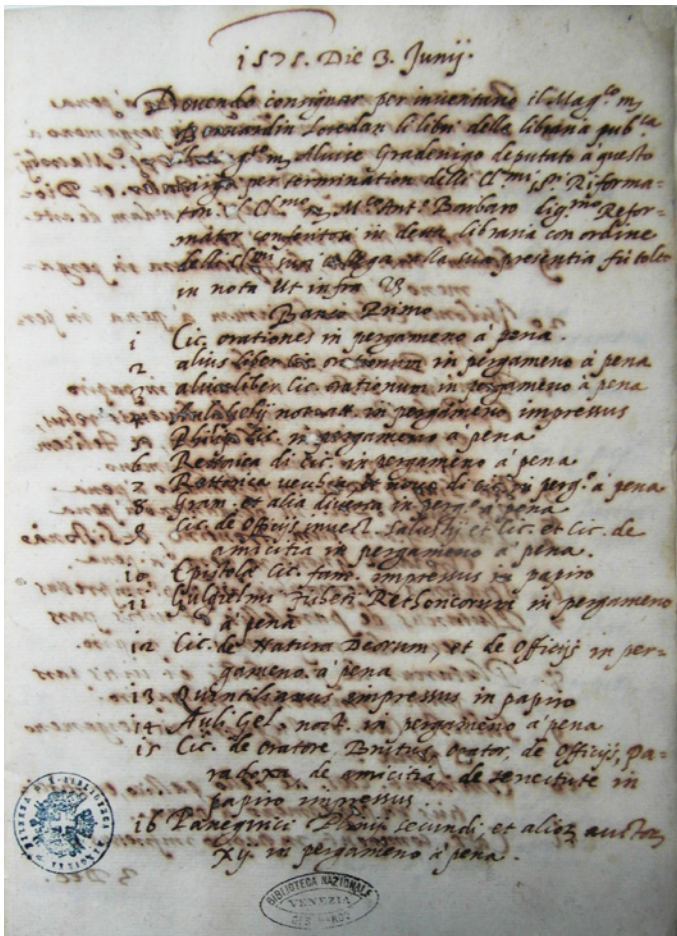 1575. Die 3. Junij.
Dovendo consignar per inventario il Mag.co m.
Bernardin Loredan li libri della libraria pub.ca
m. Alvise Gradenigo deputato à questo
per termination delli Cl.mi S.ri Riforma-
tori. Il Cl.mo M. Ant.o Barbaro Refor-
mator in detta libraria con ordine
delli Cl.mi suoi alla sua presentia fù tolto
in nota ut infra
Banco Primo
1 Cic. orationes in pergameno à pena.
2 alius liber Cic. orationum in pergameno à pena
3 alius liber Cic. orationum in pergameno à pena
4 Auli Gelij noct. att. in pergameno impressus
5 Philip. Cic. in pergameno à pena
6 Rettorica di Cic. in pergameno à pena
7 Rettorica di Cic. in perg.o à pena
8 Gram. et alia diversa in perg.o à pena
9 Cic. de Officijs invect. Salustij et Cic. et Cic. de
amicitia in pergameno à pena.
10 Epistole Cic. fam. impressus in papiro
11 Gulgielmi Fisheti Rethoricorum in pergameno
à pena
12 Cic. de Natura Deorum, et de Officijs in per=
gameno à pena
13 Quintilianus impressus in papiro
14 Auli Gel. noct. in pergameno à pena
15 Cic. de Oratore, Brutus, orator, de Officijs, pa=
radoxa, de amicitia de senectute in
papiro impressus
16 Panegirici Plinij secundi, et alior.
XIJ. in pergameno à pena.
BIBLIOTECA NAZIONALE
VENEZIA